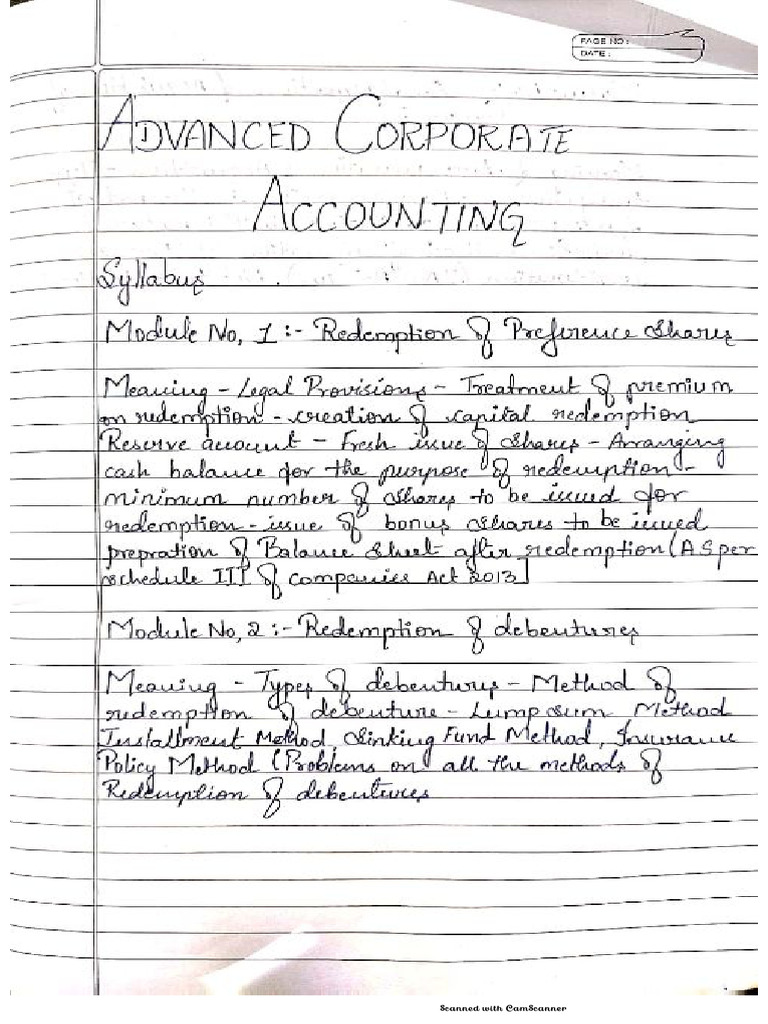 PAGE NO:
DATE:
ADVANCED CORPORATE
ACCOUNTING
Syllabus
Module No, 1 :- Redemption of Preference Shares
Meaning - Legal Provisions - Treatment of premium
on redemption - creation of capital redemption
Reserve account - Fresh issue of shares - Arranging
cash balance for the purpose of redemption -
minimum number of shares to be issued for
redemption - issue of bonus shares to be issued
prepration of Balance Sheet after redemption (AS per
schedule III of companies Act 2013]
Module No, 2 :- Redemption of debentures
Meaning - Types of debentures - Method of
redemption of debenture - Lumpsum Method
Installment Method, Sinking Fund Method, Insurance
Policy Method (Problems on all the methods of
Redemption of debentures
Scanned with CamScanner